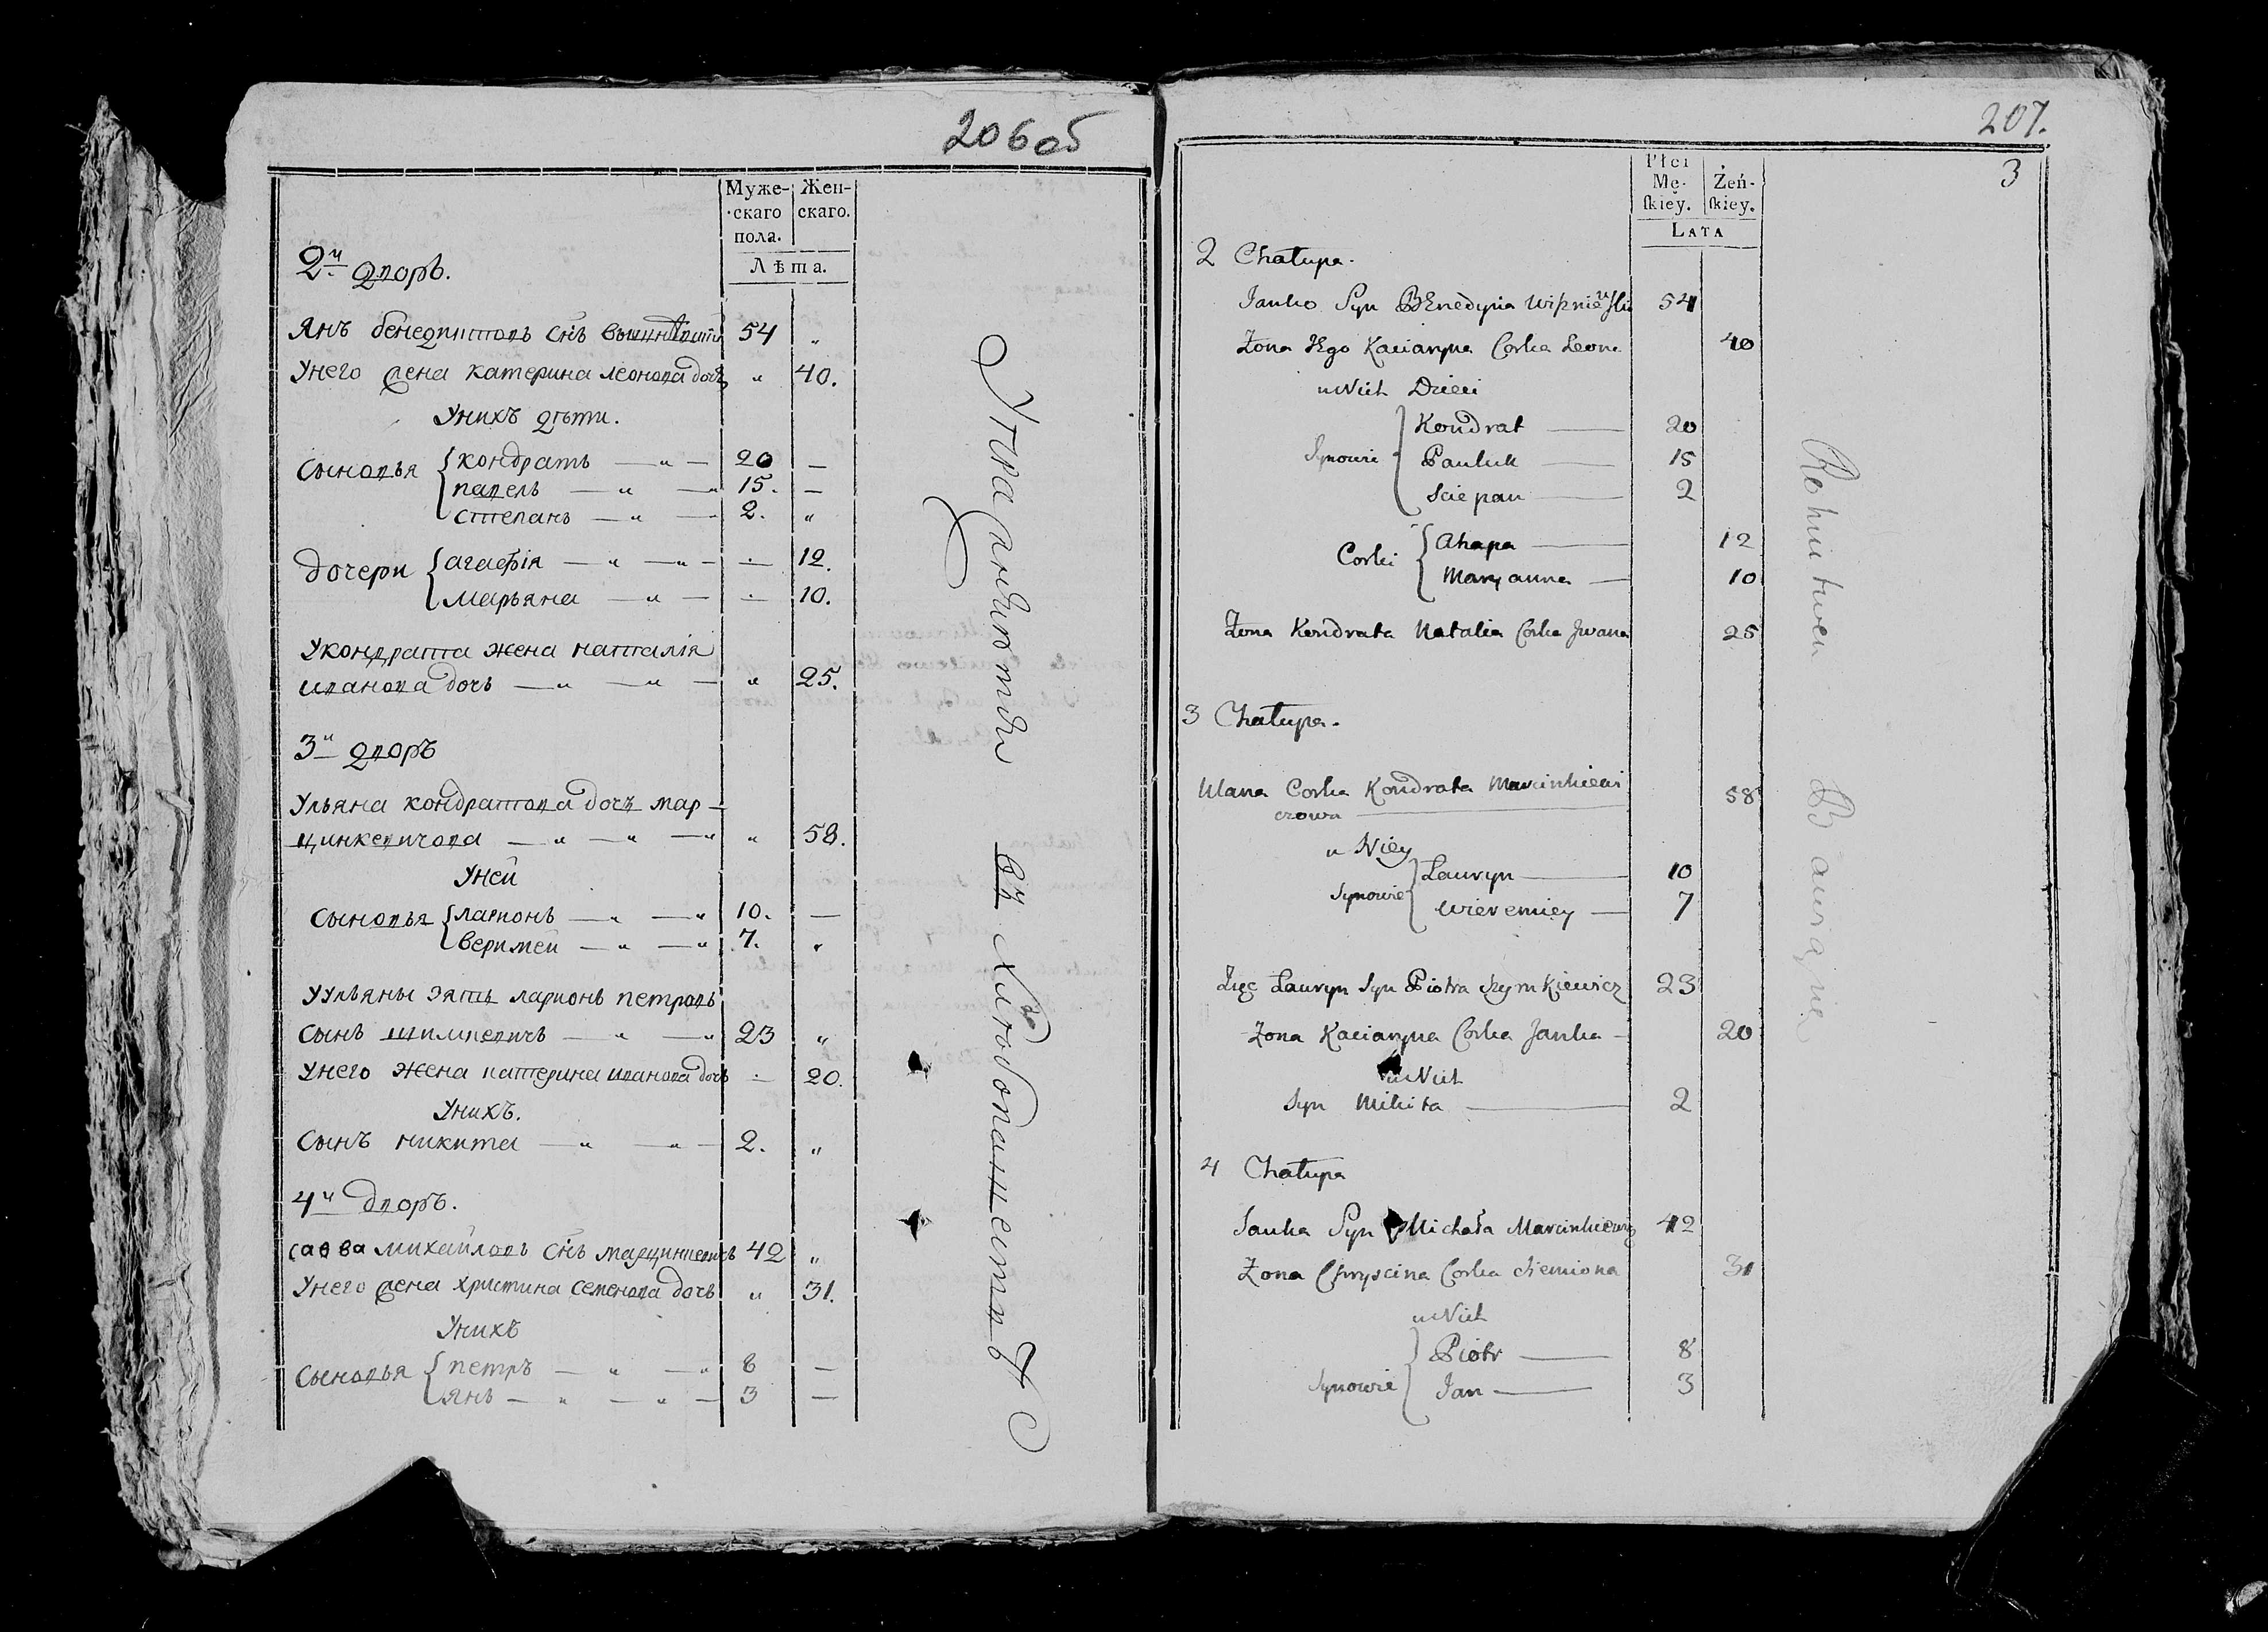 206об
Муже-
скаго
пола.
Жен-
скаго.
Лѣта.
2й дворъ.
Янъ бенедиктовъ снъ 54 „
Унего жена катерина леонова дочь „ 40.
Унихъ дѣти.
Сыновья { кондратъ — „ — 20 —
павелъ — „ — „ 15. —
степанъ — „ — 2. „
дочери { агафія — „ — „ — — 12.
марьяна — „ — — 10.
Укондрата жена наталія
иванова дочь — „ — „ — „ 25.
3й дворъ
Ульяна кондратова дочь мар-
цинкевичова — „ — „ — „ „ 58.
Уней
Сыновья { ларионъ — „ — „ 10. —
веримей — „ — „ 7. „
Уульяны зять ларионъ петровъ
сынъ шимкевичъ — „ — „ 23 „
Унего жена катерина иванова дочь — 20.
Унихъ.
Сынъ никита — „ — „ — 2. „
4й дворъ.
савва михайловъ снъ марцинкевичъ 42 „
Унего жена христина семенова дочь „ 31.
Унихъ
Сыновья { петръ — „ — „ 8 —
янъ — „ — „ — 3 —
207.
3
Płci
Mę-
ſkiey.
Żeń-
ſkiey.
LATA
2 Chałupa.
Janko Syn Benedyka 54
Żona Jego Kaciaryna Corka Leona 40
u Nich Dzieci
Synowie { Kondrat — 20
Pauluk — 15
Sciepan — 2
Corki { Ahapa — 12
Maryanna — 10
Żona Kondrata Natalia Corka Jwana 25
3 Chałupa.
Ulana Corka Kondrata Marcinkiewi
czowa — 58
u Niey
Synowie { Lauryn — 10
Wieremiey — 7
Zięc Lauryn Syn Piotra Szymkiewicz 23
Żona Kaciaryna Corka Janka — 20
u Nich
Syn Mikita — 2
4 Chałupa
Sauka Syn Michała Marcinkiewicz 42
Żona Chryscina Corka Siemiona 31
u Nich
Synowie { Piotr — 8
Jan — 3